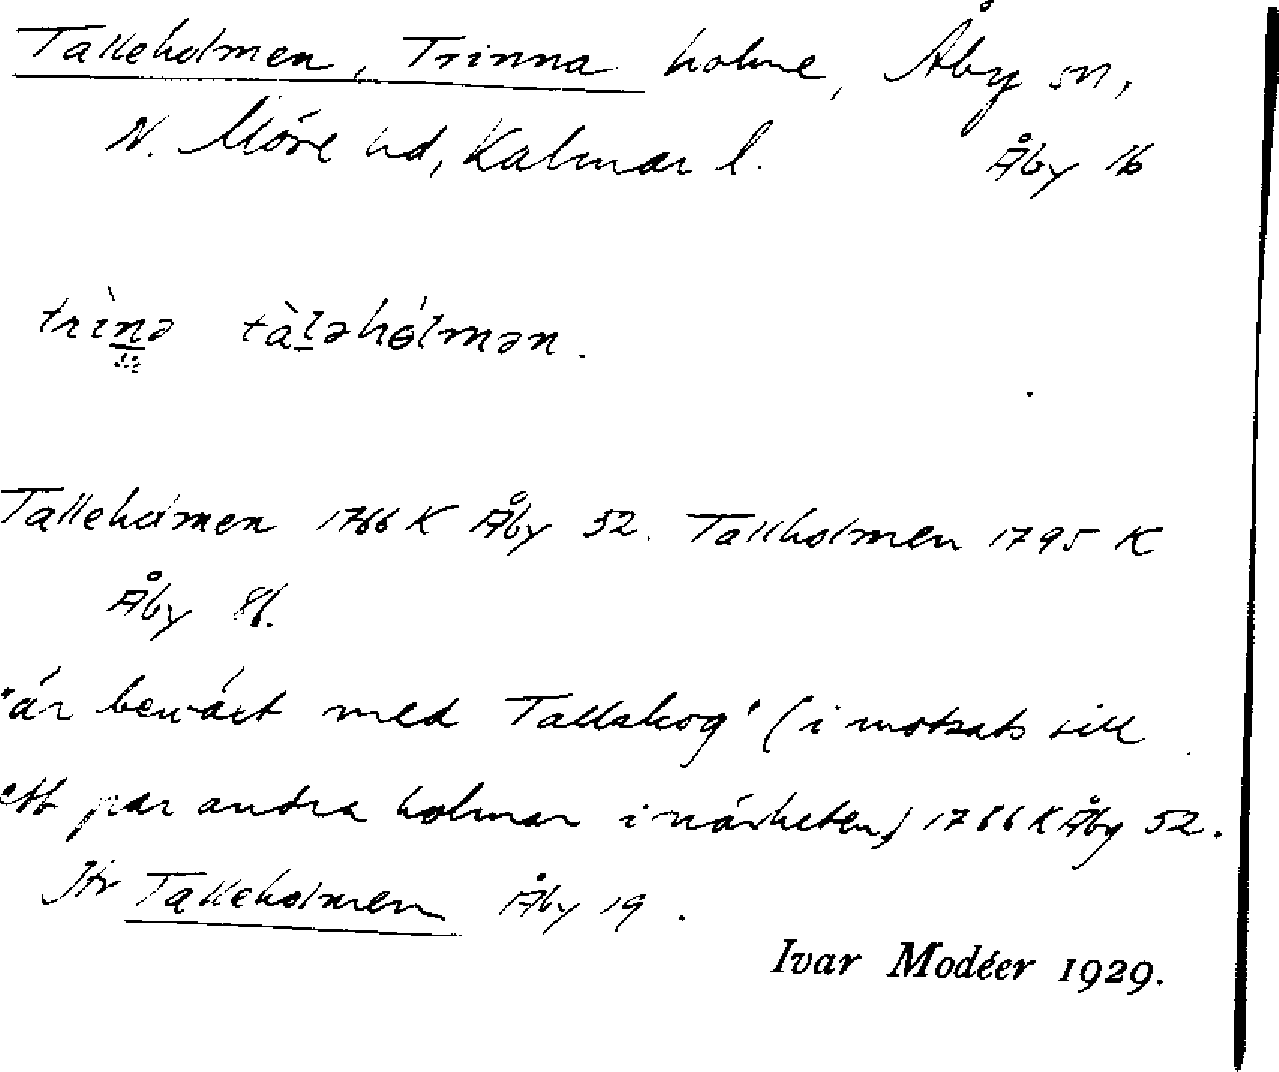 Talleholmen, Trinna holme, Åby sn,
N. Möre hd, Kalmar l. Åby 16
trìnə tàləhólmən.
Talleholmen 1766 K Åby 52. Tallholmen 1795 K
Åby 86.
"är bewäxt med Tallskog" (i motsats till
ett par andra holmar i närheten) 1766 K Åby 52.
Jfr Talleholmen Åby 19.
Ivar Modéer 1929.